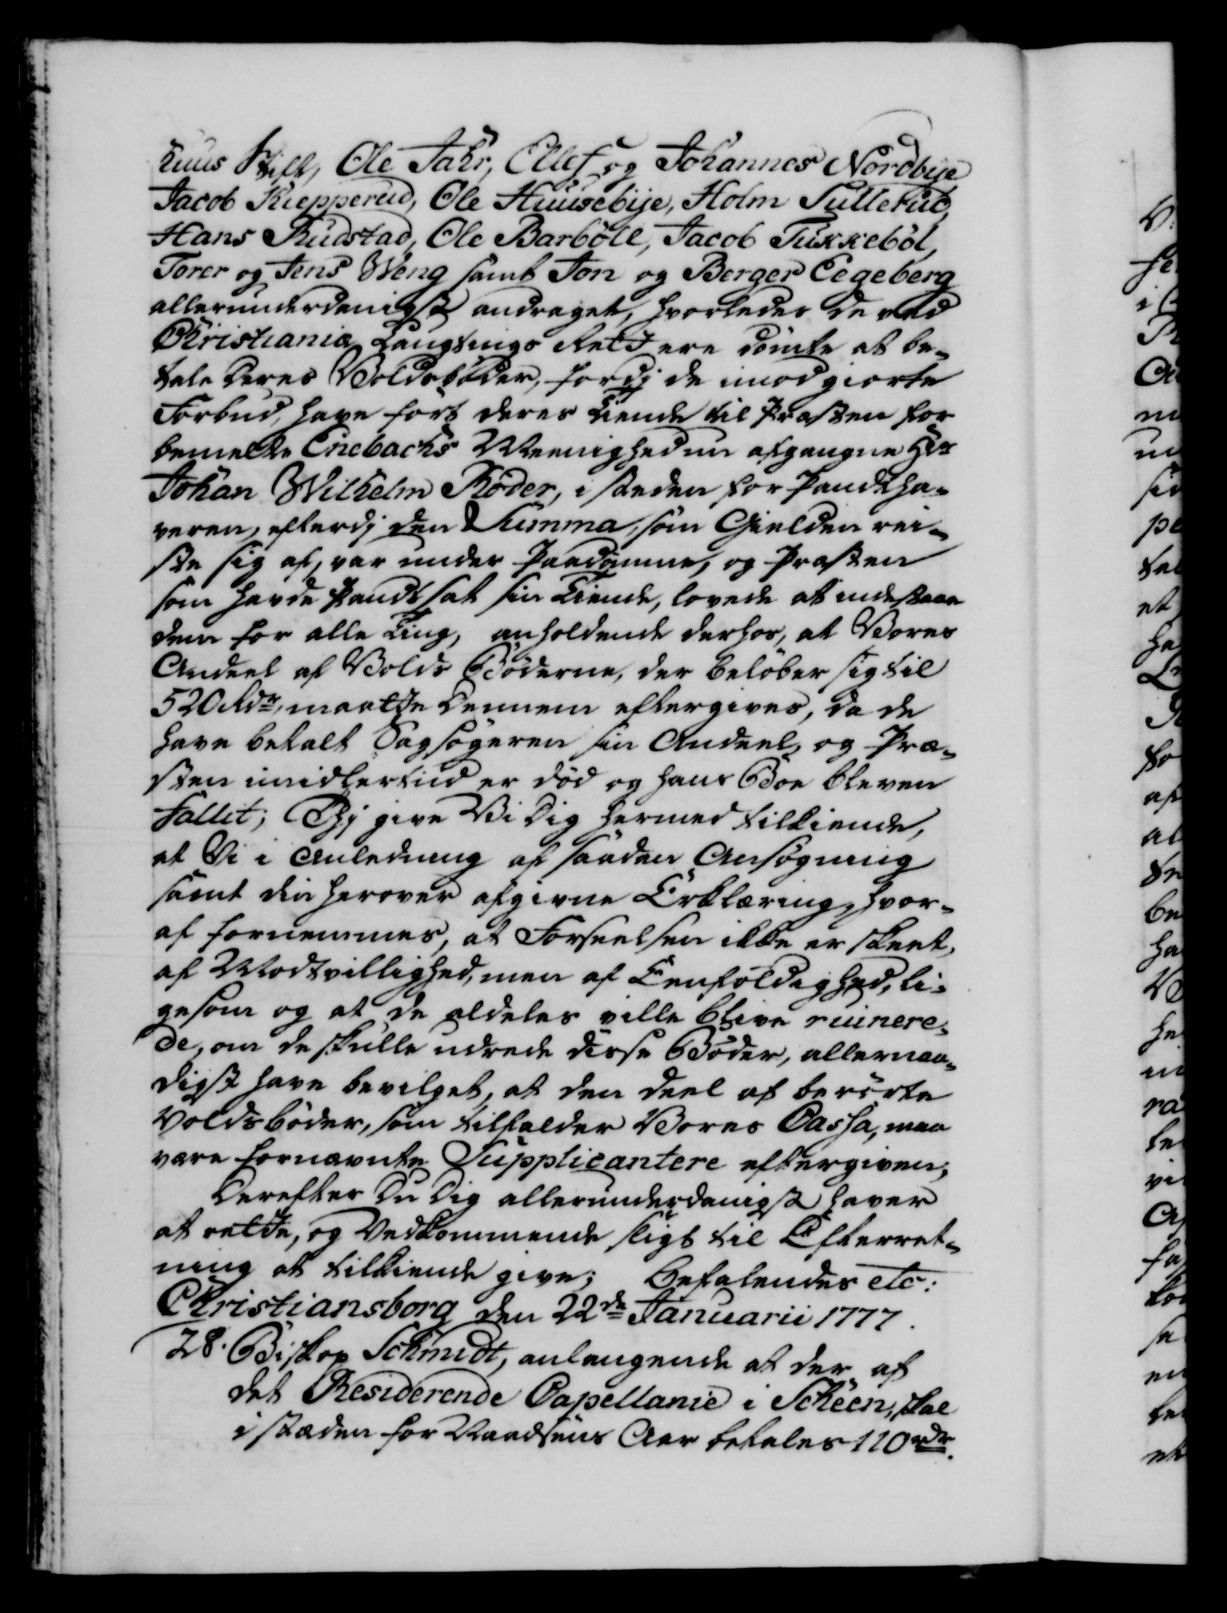 huus Stift, Ole Jahr, Ellef og Johannes Nordbije
Jacob Kiepperud, Ole Huusebije, Holm Sullerud,
Hans Rudstad, Ole Barböll, Jacob Tukkeböl,
Torer og Jens Weng samt Jon og Berger Eegeberg
allerunderdanigst andraget, hvorledes de ved
Christiania Laugtings Rett ere dömte at be-
tale deres Voldsböder, fordj de imod giorte
Forbud, have fört deres Tiende til Præsten for
bemelte Enebachs Meenighed nu afgangne Hr
Johan Wilhelm Röder, i steden for Pandtha-
veren, efterdj den Summa, som Gielden rei-
ste sig af, var under Paadömme, og Præsten
som havde Pandtsat sin Tiende, lovede at indestaae
dem for alle Ting, anholdende derhos, at Vores
Andeel af Volds Böderne, der belöber sig til
520 Rdr, maatte dennem eftergives, da de
have betalt Sagsögeren sin Andeel, og Præ-
sten imidlertiid er död og hans Boe bleven
Fallit; Thj give Vi Dig hermed tilkiende,
at Vi i Anledning af saadan Ansögning
samt din herover afgivne Erklæring, hvor-
af fornemmes, at Forseelsen ikke er skeet,
af Modtvillighed, men af Eenfoldighed, li-
gesom og at de aldeles ville blive ruinere-
de, om de skulle udrede disse Böder, allernaa-
digst have bevilget, at den deel af berörte
Voldsböder, som tilfalder Vores Cassa, maa
være fornævnte Supplicantere eftergiven;
Derefter Du Dig allerunderdanigst haver
at rette, og Vedkommende sligt til Efterret-
ning at tilkiende give; Befalendes etc:
Christiansborg den 22de Januarii 1777.
28. Biskop Schmidt, anlangende at der af
det Residerende Capellanie i Scheen, skal
i stæden for Naadsens Aar betales 110 rdr.